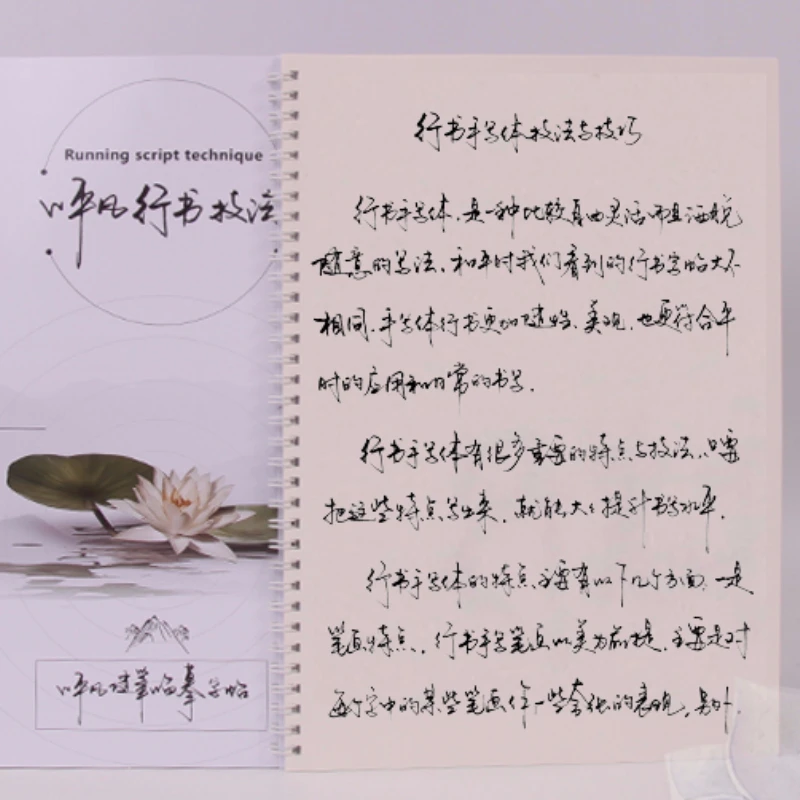 Running script technique
呼风行书技法
呼风随笔临摹字帖
行书手写体技法与技巧
行书手写体,是一种比较自由灵活而且洒脱
随意的写法,和平时我们看到的行书字帖大不
相同,手写体行书更加随性、美观,也更符合平
时的应用和日常的书写。
行书手写体有很多重要的特点与技法,只要
把这些特点写出来,就能大大提升书写水平。
行书手写体的特点主要有以下几个方面,一是
笔画特点,行书手写笔画以美为前提,主要是对
每个字中的某些笔画作一些夸张的表现,另外,